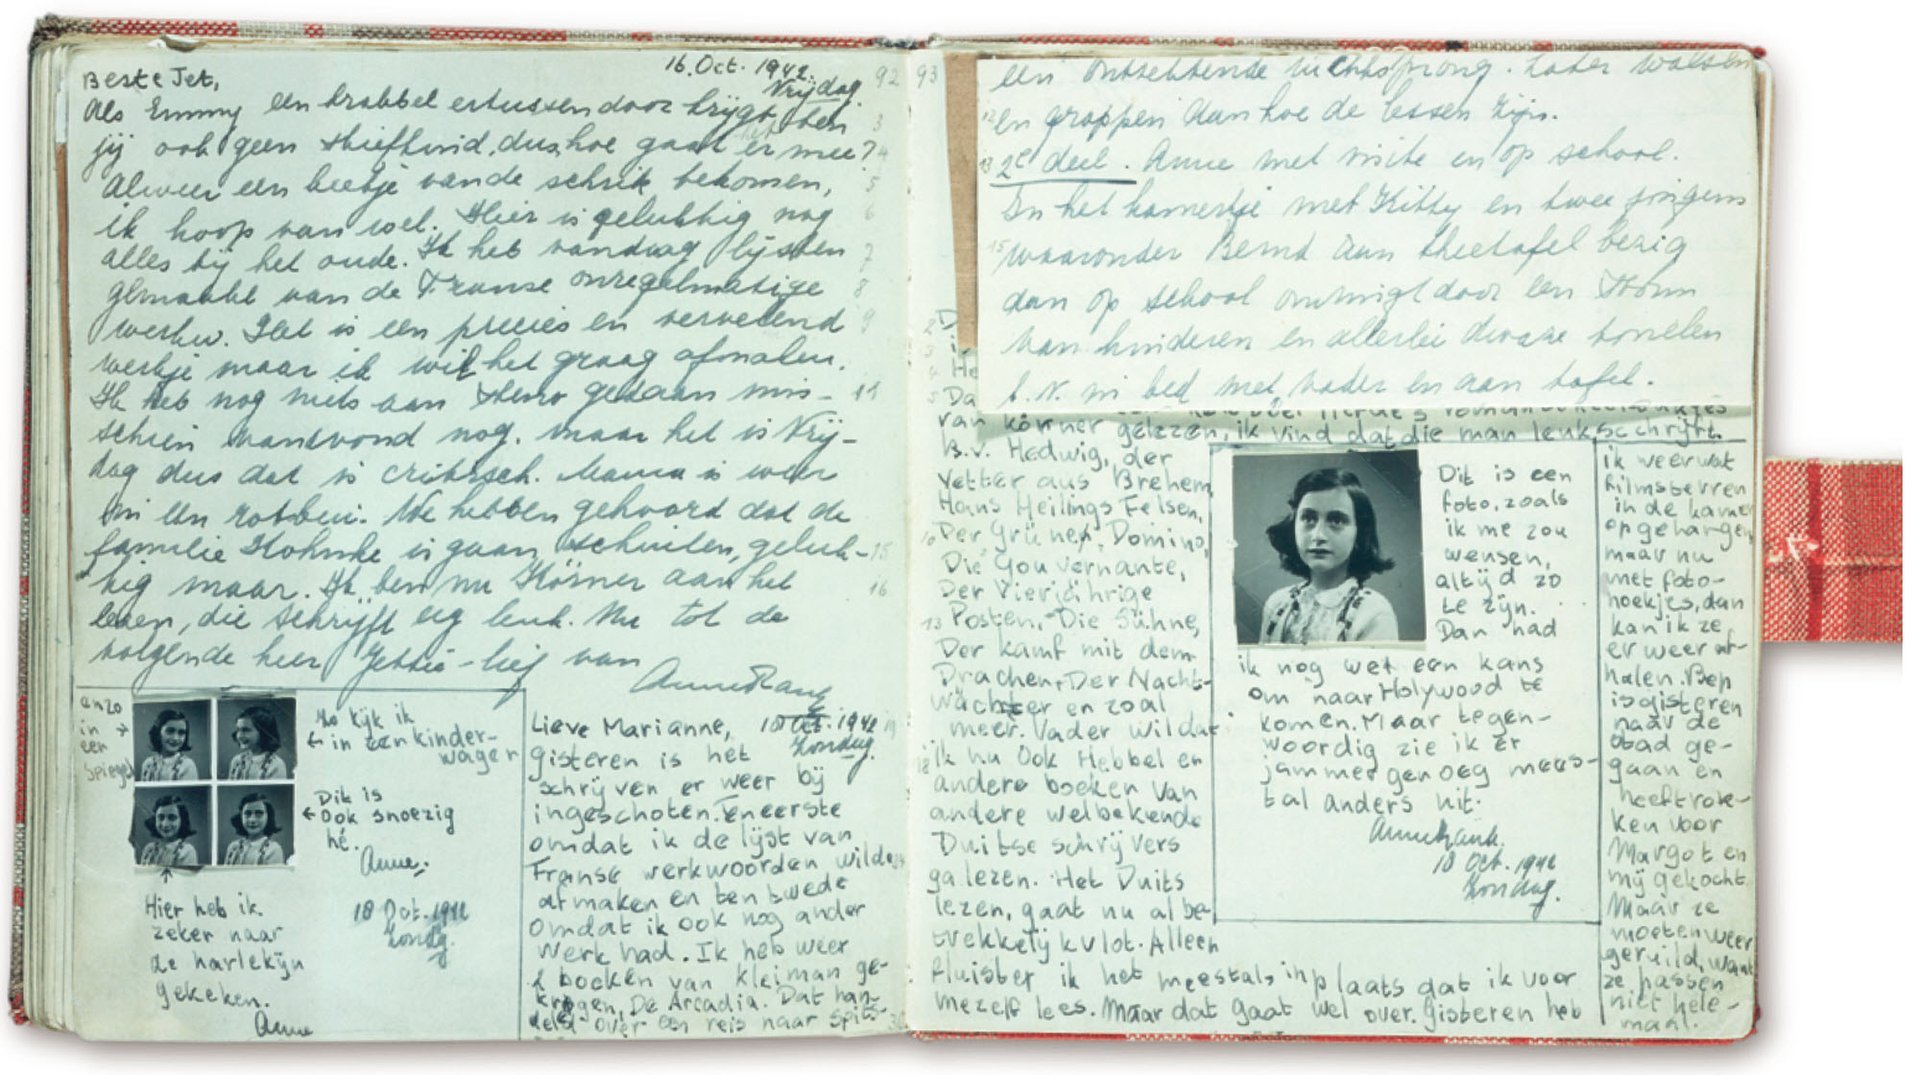 16. Oct. 1942.
Vrijdag.
92
Beste Jet,
Als Emmy een krabbel ertussendoor krijgt ben
jij ook geen stiefkind, dus hoe gaat het er mee?
Alweer een beetje van de schrik bekomen,
ik hoop van wel. Hier is gelukkig nog
alles bij het oude. Ik heb vandaag lijsten
gemaakt van de Franse onregelmatige
werkw. Het is een precies en vervelend
werkje maar ik wil het graag afmaken.
Ik heb nog niets aan steno gedaan mis-
schien vanavond nog, maar het is Vrij-
dag dus dat is critisch. Mama is weer
in een rotbui. We hebben gehoord dat de
familie is gaan schuilen, geluk-
kig maar. Ik ben nu Körner aan het
lezen, die schrijft erg leuk. Nu tot de
volgende keer Jettie-lief van
Anne Frank
anzo
in
een
spiegel
Zo kijk ik
in een kinder-
wagen
Dit is
ook snoezig
hé.
Anne.
18 Oct. 1942
Zondag.
Hier heb ik
zeker naar
de harlekijn
gekeken.
Anne
Lieve Marianne,
18 Oct. 1942
Zondag.
gisteren is het
schrijven er weer bij
ingeschoten. Teneerste
omdat ik de lijst van
Franse werkwoorden wilde
afmaken en ten twede
omdat ik ook nog ander
werk had. Ik heb weer
2 boeken van Kleiman ge-
kregen, De Arcadia. Dat han-
delt over een reis naar Spits-
93
een ontzettende luchtsprong. Later walsen
en grappen dan hoe de lessen zijn.
2e deel. Anne met visite en op school.
In het kamertje met Kitty en twee jongens
waaronder Bernd aan theetafel bezig
dan op school omringt door een stroom
van kinderen en allerlei dwaze tonelen
b.v. in bed met vader en aan tafel.
He
Da
van körner gelezen, ik vind dat die man leuk schrijft.
B.v. Hedwig, der
Vetter aus Brehem,
Hans Heilings Felsen,
Der Grüne Domino,
Die Gouvernante,
Der Vierjährige
Posten, Die Sühne,
Der kamf mit dem
Drachen, Der Nacht-
wächter en zoal
meer. Vader wil dat
ik nu ook Hebbel en
andere boeken van
andere welbekende
Duitse schrijvers
ga lezen. Het Duits
lezen, gaat nu al be-
trekkelijk vlot. Alleen
fluister ik het meestals inplaats dat ik voor
mezelf lees. Maar dat gaat wel over. Gisteren heb
Dit is een
foto, zoals
ik me zou
wensen,
altijd zo
te zijn.
Dan had
ik nog wel een kans
om naar Holywood te
komen. Maar tegen-
woordig zie ik er
jammer genoeg mees-
tal anders uit.
Anne Frank.
18 Oct. 1942
Zondag.
ik weer wat
filmsterren
in de kamer
opgehangen
maar nu
met foto-
hoekjes, dan
kan ik ze
er weer af-
halen. Bep
is gisteren
naar de
stad ge-
gaan en
heeft rok-
ken voor
Margot en
mij gekocht
Maar ze
moeten weer
geruild, want
ze passen
niet hele-
maal.